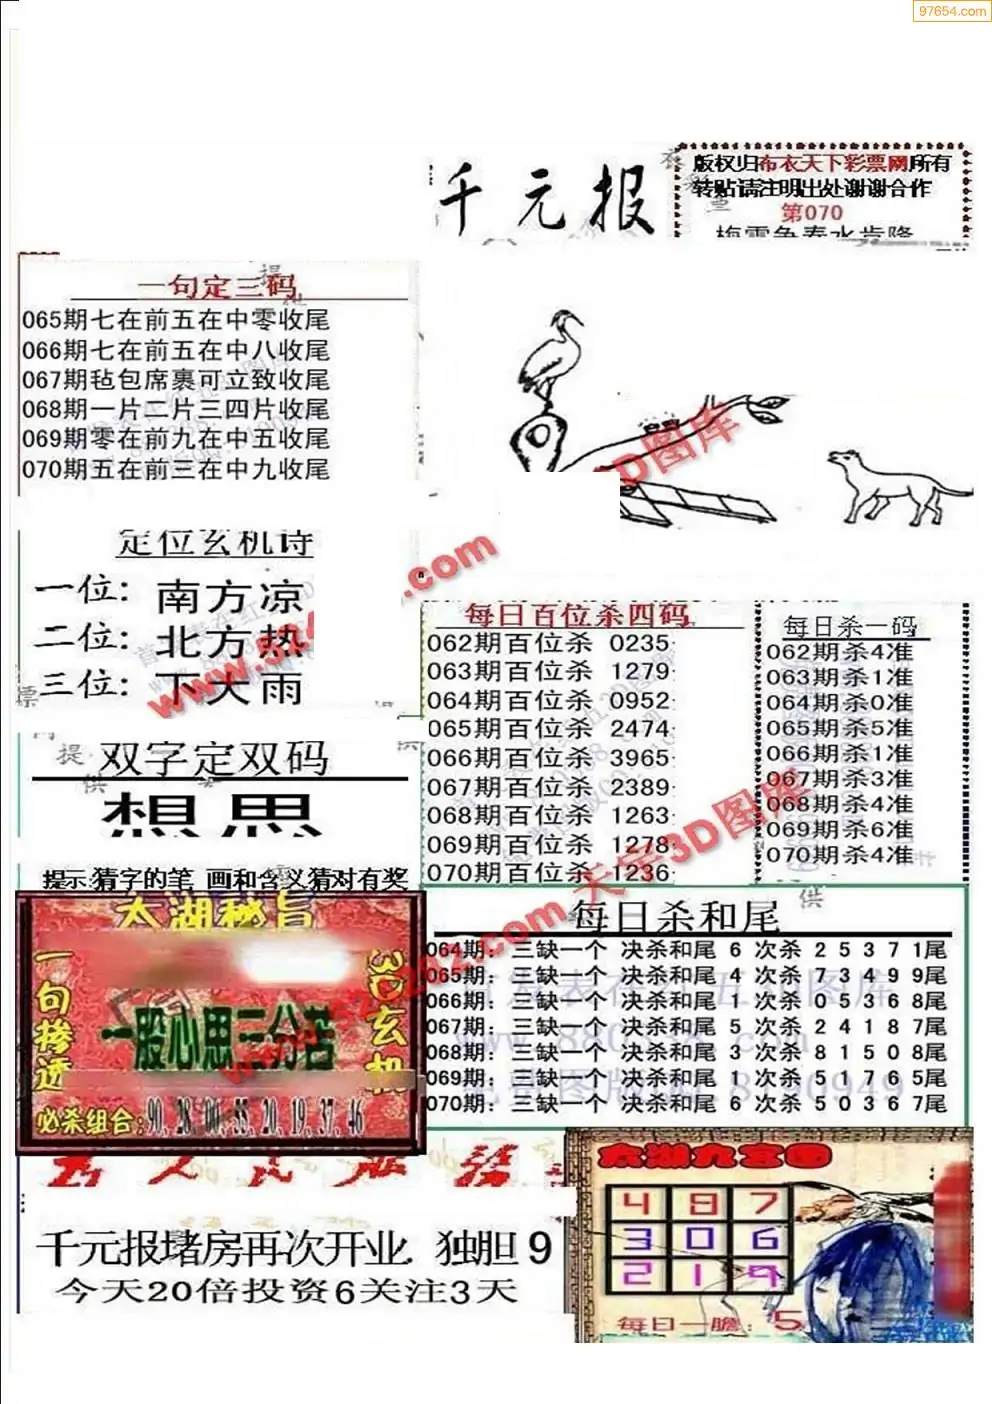 97654.com
千元报
版权归布衣天下彩票网所有
转贴请注明出处谢谢合作
第070
一句定三码
065期七在前五在中零收尾
066期七在前五在中八收尾
067期毡包席裹可立致收尾
068期一片二片三四片收尾
069期零在前九在中五收尾
070期五在前三在中九收尾
定位玄机诗
一位：南方凉
二位：北方热
三位：下大雨
每日百位杀四码
062期百位杀 0235
063期百位杀 1279
064期百位杀 0952
065期百位杀 2474
066期百位杀 3965
067期百位杀 2389
068期百位杀 1263
069期百位杀 1278
070期百位杀 1236
每日杀一码
062期杀4准
063期杀1准
064期杀0准
065期杀5准
066期杀1准
067期杀3准
068期杀4准
069期杀6准
070期杀4准
提供
双字定双码
想思
提示:猜字的笔 画和含义猜对有奖
太湖秘旨
一句掺透
一股心思三分苦
3D玄机
必杀组合:90.28.00.55.20.19.37.46
每日杀和尾
064期：三缺一个 决杀和尾 6 次杀 2 5 3 7 1尾
065期：三缺一个 决杀和尾 4 次杀 7 3 4 9 9尾
066期：三缺一个 决杀和尾 1 次杀 0 5 3 6 8尾
067期：三缺一个 决杀和尾 5 次杀 2 4 1 8 7尾
068期：三缺一个 决杀和尾 3 次杀 8 1 5 0 8尾
069期：三缺一个 决杀和尾 1 次杀 5 1 7 6 5尾
070期：三缺一个 决杀和尾 6 次杀 5 0 3 6 7尾
千元报堵房再次开业. 独胆 9
今天20倍投资6关注3天
太湖九宫图
4 8 7
3 0 6
2 1 9
每日一胆：5
天宇3D图库